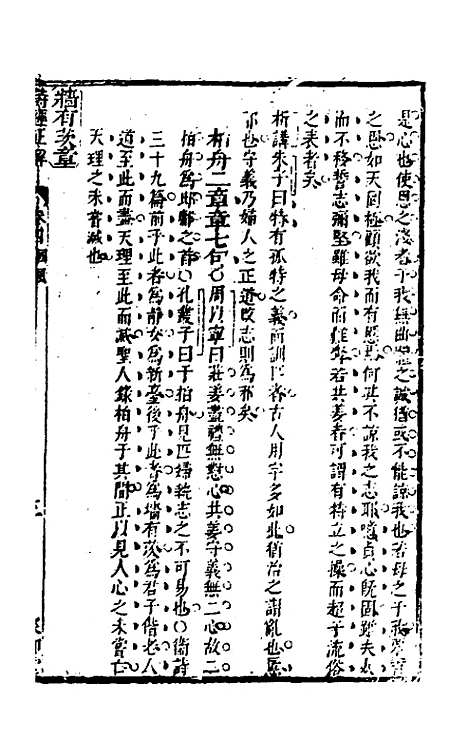 是心也使恩之淺者于我無曲體之誠猶或不能諒我也若母之于我鞠育
之恩如天罔極顧欲我而有慝何其不諒我之志耶噫貞心既固雖夫如
而不移誓志彌堅雖母命而難奪若共姜者可謂有特立之操而超乎流俗
之表者矣
析講朱子曰特有孤特之義而訓匹者古人用字多如此猶治之謂亂也慝
邪也守義乃婦人之正道改志則為邪矣
柏舟二章章七句○周以寧曰莊姜盡禮無懟心共姜守義無二心故二
柏舟為邶鄘之首○孔叢子曰于柏舟見匹婦執志之不可易也○衛詩
三十九篇前乎此者為靜女為新臺後乎此者為墻有茨為君子偕老人
道至此而盡天理至此而滅聖人錄柏舟于其間正以見人心之未嘗亡
天理之未嘗滅也
牆有茨章
詩經正解
卷四鄘風
三